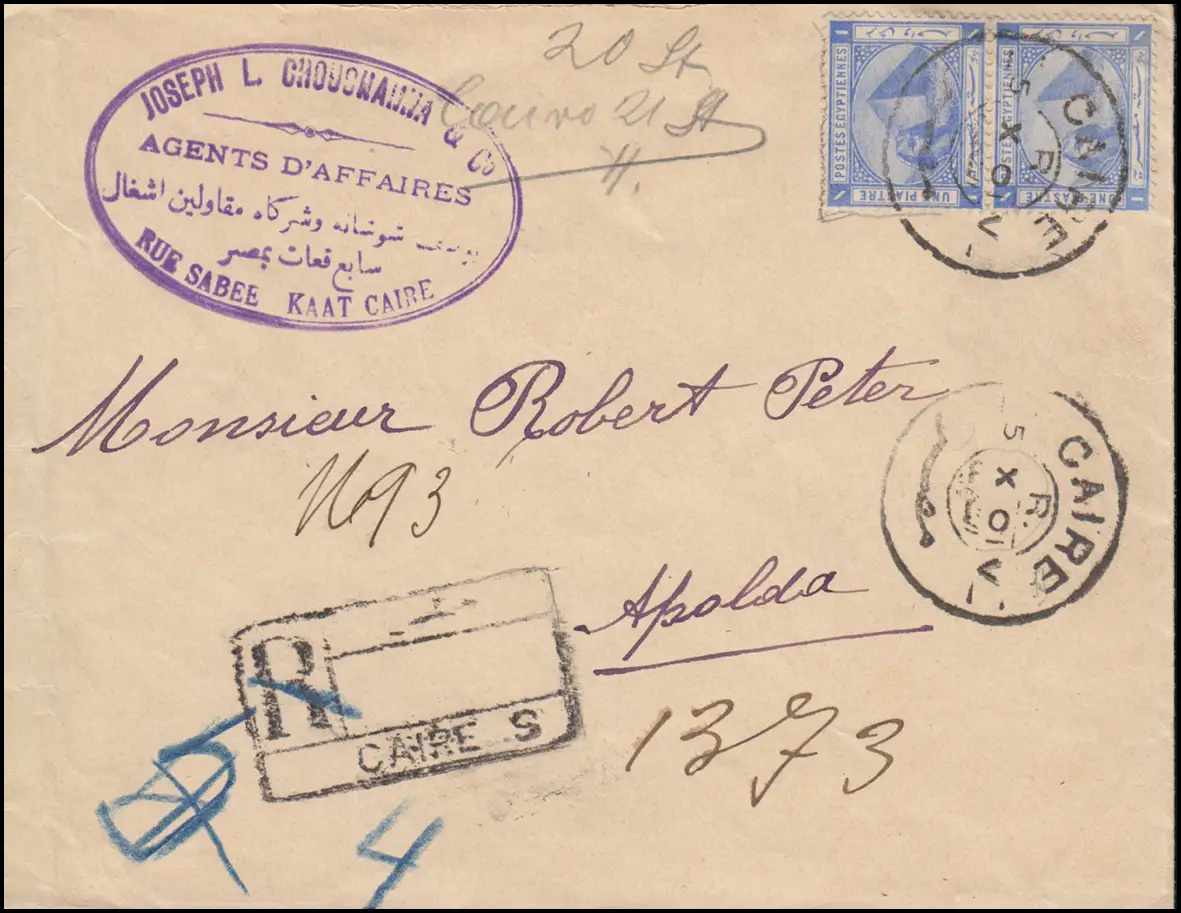 JOSEPH L. CHOUCHANNA & Co
AGENTS D'AFFAIRES
يوسف شوشانه وشركاه مقاولين اشغال
سابع قعات بمصر
RUE SABEE KAAT CAIRE
20 St
Cairo 21 St
POSTES EGYPTIENNES
UNE PIASTRE
1
POSTES EGYPTIENNES
UNE PIASTRE
1
CAIRE
R
5 X 01
V
Monsieur Robert Peter
No 93
CAIRE
R.
5 X 01
V
Apolda
R
CAIRE S
1373
4